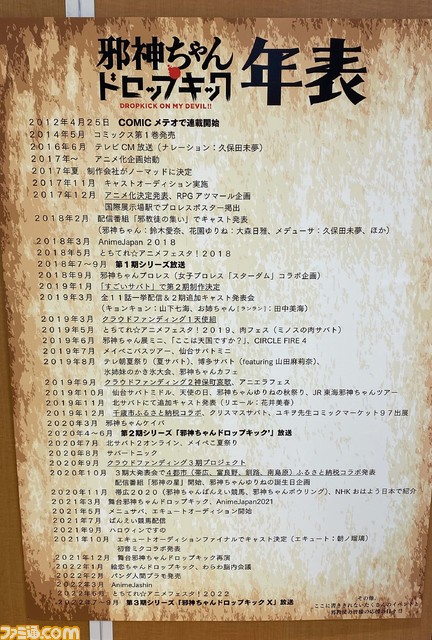 邪神ちゃん
ドロップキック
DROPKICK ON MY DEVIL!!
年表
2012年4月25日 COMICメテオで連載開始
2014年5月 コミックス第1巻発売
2016年6月 テレビCM放送（ナレーション：久保田未夢）
2017年～ アニメ化企画始動
2017年夏 制作会社がノーマッドに決定
2017年11月 キャストオーディション実施
2017年12月 アニメ化決定発表、RPGアツマール企画
国際展示場駅でプロレスポスター掲出
2018年2月 配信番組「邪教徒の集い」でキャスト発表
（邪神ちゃん：鈴木愛奈、花園ゆりね：大森日雅、メデューサ：久保田未夢、ほか）
2018年3月 AnimeJapan 2018
2018年5月 とちてれ☆アニメフェスタ！2018
2018年7～9月 第1期シリーズ放送
2018年9月 邪神ちゃんプロレス（女子プロレス「スターダム」コラボ企画）
2019年1月 「すごいサバト」で第2期制作決定
2019年3月 全11話一挙配信＆2期追加キャスト発表会
（キョンキョン：山下七海、お姉ちゃん（ランラン）：田中美海）
2019年3月 クラウドファンディング1天使組
2019年5月 とちてれ☆アニメフェスタ！2019、肉フェス（ミノスの肉サバト）
2019年6月 邪神ちゃん展ミニ、「ここは天国ですか？」、CIRCLE FIRE 4
2019年7月 メイぺこバスツアー、仙台サバトミニ
2019年8月 テレ朝夏祭り（夏サバト）、博多サバト（featuring 山田麻莉奈）、
氷姉妹のかき氷大会、邪神ちゃんカフェ
2019年9月 クラウドファンディング2神保町哀歌、アニエラフェス
2019年10月 仙台サバトミドル、天使の日、邪神ちゃんゆりねの秋祭り、JR東海邪神ちゃんツアー
2019年11月 北サバトにて追加キャスト発表（リエール：花井美春）
2019年12月 千歳市ふるさと納税コラボ、クリスマスサバト、ユキヲ先生コミックマーケット97出展
2020年3月 邪神ちゃんケイバ
2020年4～6月 第2期シリーズ「邪神ちゃんドロップキック'」放送
2020年7月 北サバト2オンライン、メイぺこ夏祭り
2020年8月 サバートニック
2020年9月 クラウドファンディング3期プロジェクト
2020年10月 3期大発表会で4都市（帯広、富良野、釧路、南島原）ふるさと納税コラボ発表
配信番組「邪神の星」開始、邪神ちゃんゆりねの誕生日企画
2020年11月 帯広2020（邪神ちゃんばんえい競馬、邪神ちゃんボウリング）、NHKおはよう日本で紹介
2021年3月 舞台邪神ちゃんドロップキック、AnimeJapan2021
2021年5月 メニュサバ、エキュートオーディション開始
2021年7月 ばんえい競馬配信
2021年9月 ハロウィンですの
2021年10月 エキュートオーディションファイナルでキャスト決定（エキュート：朝ノ瑠璃）
初音ミクコラボ発表
2021年12月 舞台邪神ちゃんドロップキック再演
2022年1月 絵恋ちゃんドロップキック、わらわ脳内会議
2022年2月 パンダ人間プラモ発売
2022年3月 AnimeJashin
2022年5月 とちてれ☆アニメフェスタ！2022
2022年7～9月 第3期シリーズ「邪神ちゃんドロップキックX」放送
その他、
ファミ通.com